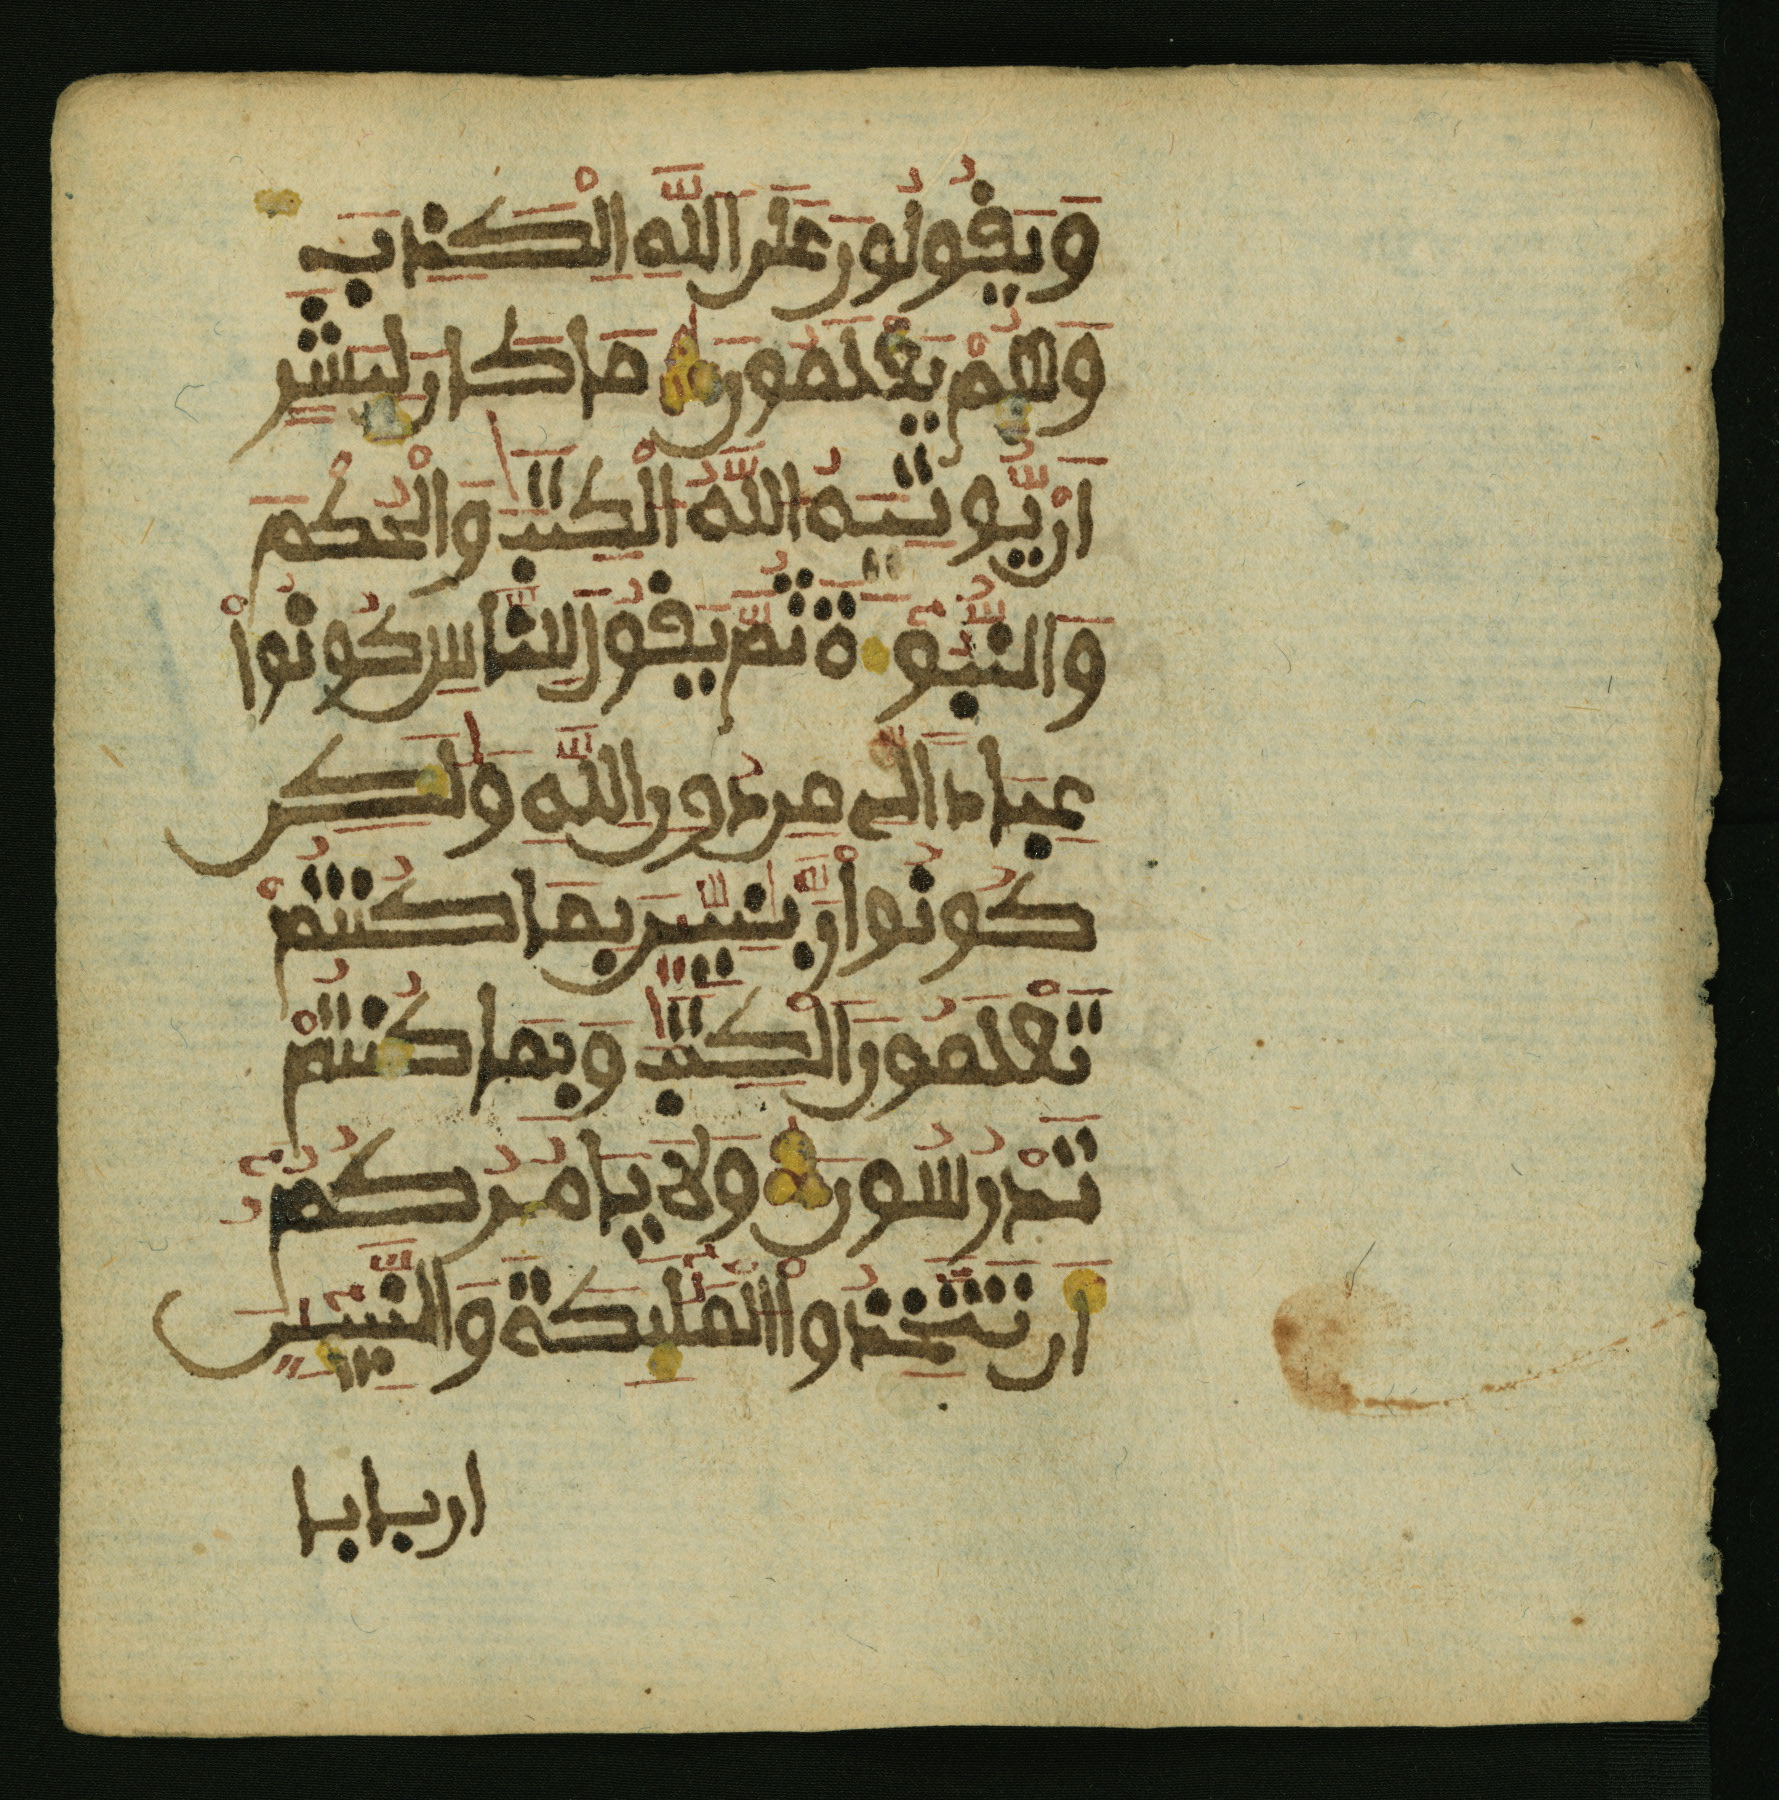 وَيَقُولُونَ عَلَى اللَّهِ الْكَذِبَ
وَهُمْ يَعْلَمُونَ مَا كَانَ لِبَشَرٍ
اَنْ يُّوتِيَهُ اللَّهُ الْكِتَٰبَ وَالْحُكْمَ
وَالنُّبُوٓءَةَ ثُمَّ يَقُولَ لِلنَّاسِ كُونُواْ
عِبَادًا لِّے مِن دُونِ اللَّهِ وَلَٰكِن
كُونُواْ رَبَّٰنِيِّينَ بِمَا كُنتُمْ
تَعْلَمُونَ الْكِتَٰبَ وَبِمَا كُنتُمْ
تَدْرُسُونَ وَلَا يَامُرُكُمُۥٓ
أَن تَتَّخِذُواْ الْمَلَٰٓئِكَةَ وَالنَّبِيٓـِٕينَ
اربابا